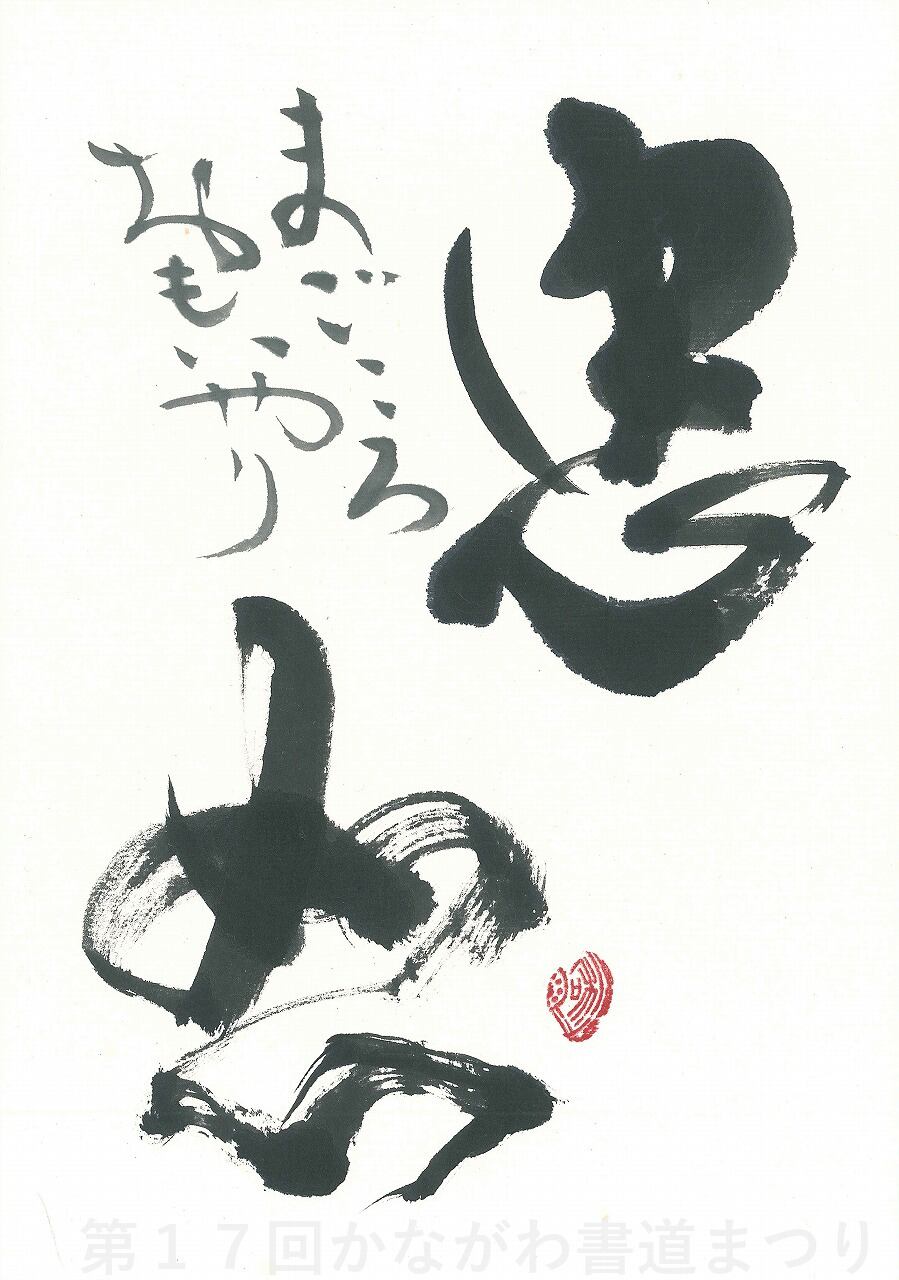 忠
恕
まごころ
おもいやり
第１７回かながわ書道まつり